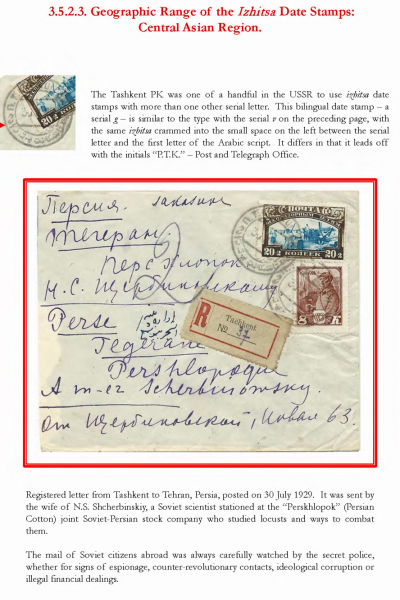 3.5.2.3. Geographic Range of the Izhitsa Date Stamps:
Central Asian Region.
The Tashkent PK was one of a handful in the USSR to use izhitsa date
stamps with more than one other serial letter. This bilingual date stamp – a
serial g – is similar to the type with the serial v on the preceding page, with
the same izhitsa crammed into the small space on the left between the serial
letter and the first letter of the Arabic script. It differs in that it leads off
with the initials “P.T.K.” – Post and Telegraph Office.
Персия. заказное
Тегеран
Персхлопок
Н.С. Щербиновскому
Perse
Tegerane
Pershlopoque
A m-er Scherbinowsky.
От Щербиновской,
63.
ПОЧТА
20 к КОПЕЕК 20 к
8
R
Tachkent
No
Registered letter from Tashkent to Tehran, Persia, posted on 30 July 1929. It was sent by
the wife of N.S. Shcherbinskiy, a Soviet scientist stationed at the “Perskhlopok” (Persian
Cotton) joint Soviet-Persian stock company who studied locusts and ways to combat
them.
The mail of Soviet citizens abroad was always carefully watched by the secret police,
whether for signs of espionage, counter-revolutionary contacts, ideological corruption or
illegal financial dealings.